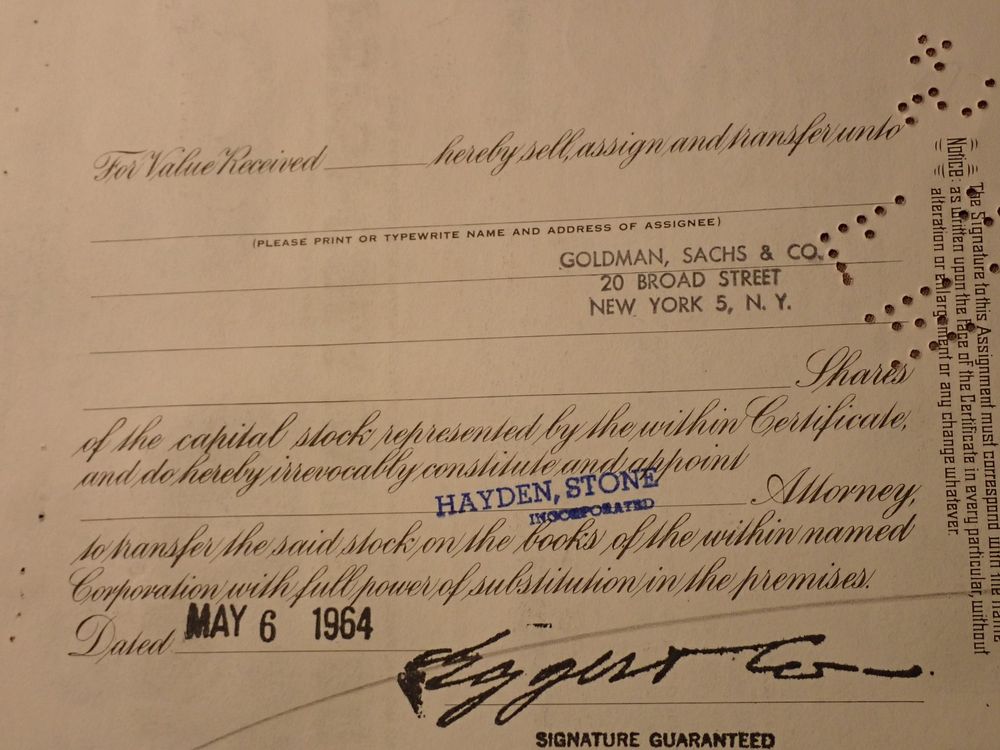 For Value Received hereby sell, assign and transfer unto
(PLEASE PRINT OR TYPEWRITE NAME AND ADDRESS OF ASSIGNEE)
GOLDMAN, SACHS & CO.
20 BROAD STREET
NEW YORK 5, N. Y.
Shares
of the capital stock represented by the within Certificate,
and do hereby irrevocably constitute and appoint
HAYDEN, STONE
INCORPORATED
Attorney,
to transfer the said stock on the books of the within named
Corporation with full power of substitution in the premises.
Dated MAY 6 1964
Eggert Co
SIGNATURE GUARANTEED
Notice: The Signature to this Assignment must correspond with the name
as written upon the face of the Certificate in every particular, without
alteration or enlargement or any change whatever.